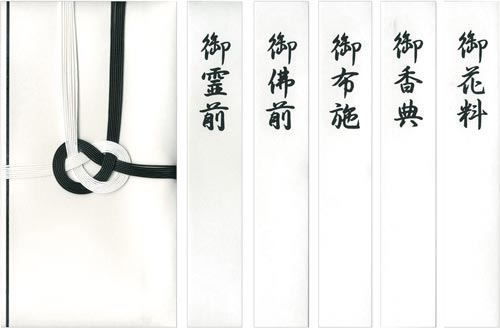 御霊前
御佛前
御布施
御香典
御花料